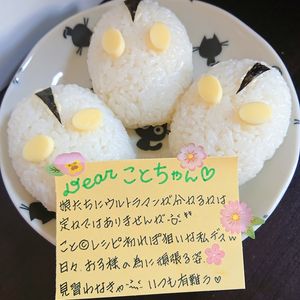 Dear ことちゃん♡
娘たちにウルトラマンが分わるわは
定わではありませんが
こと◎レシピ知れば狙いな私デスw
日々、お子様の為に頑張る姿
見習わなきゃ いつも有難う♡